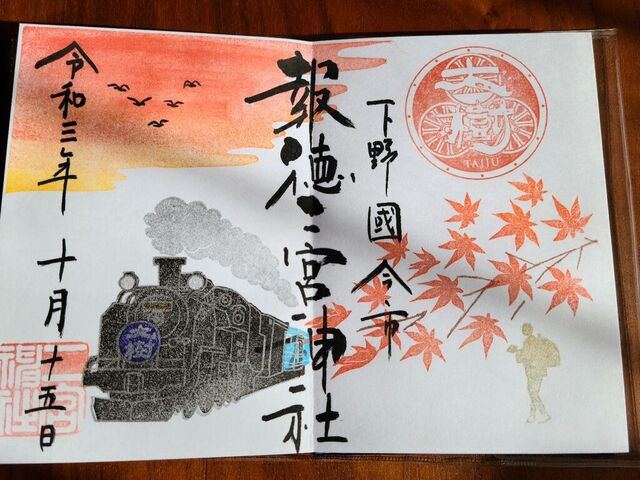 下野國今市
大樹
TAIJU
報徳二宮神社
大樹
令和三年十月十五日